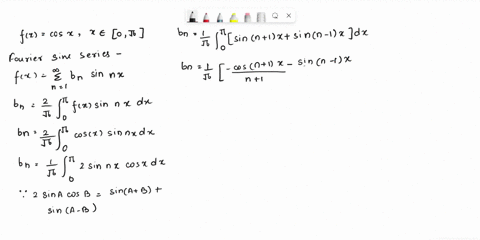 f(x) = cos x, x ∈ [0, √6]
Fourier sine series –
f(x) = ∞ Σ n=1 bn sin nx
bn = 2/√6 ∫₀^π f(x) sin n x dx
bn = 2/√6 ∫₀^√6 cos(x) sin nx dx
bn = 1/√6 ∫₀^π 2 sin nx cos x dx
∵ 2 sin A cos B = sin(A+B) +
sin (A-B)
bn = 1/√6 ∫₀^π [sin (n+1)x + sin(n-1)x] dx
bn = 1/√6 [-cos(n+1)x/n+1 - sin (n-1)x